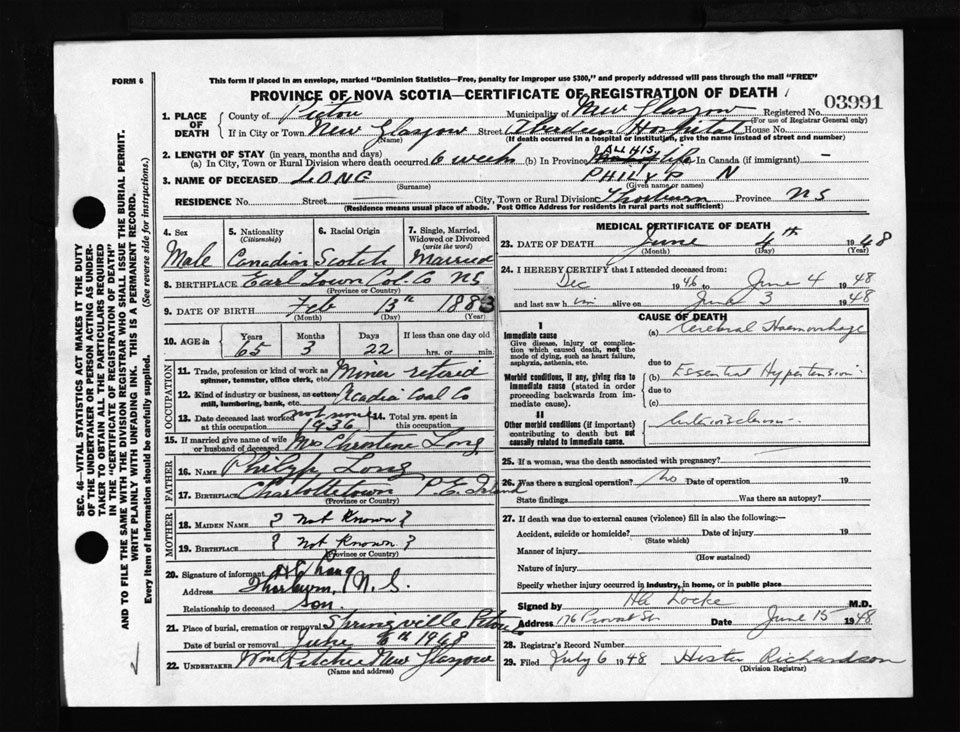 FORM 6
This form if placed in an envelope, marked "Dominion Statistics—Free, penalty for improper use $300," and properly addressed will pass through the mail "FREE"
PROVINCE OF NOVA SCOTIA—CERTIFICATE OF REGISTRATION OF DEATH
03991
1. PLACE OF DEATH
County of Pictou Municipality of New Glasgow Registered No.
(For use of Registrar General only)
If in City or Town New Glasgow Street Aberdeen Hospital House No.
(Name) (If death occurred in a hospital or institution, give the name instead of street and number)
2. LENGTH OF STAY (in years, months and days)
(a) In City, Town or Rural Division where death occurred 6 weeks (b) In Province ALL HIS life (c) In Canada (if immigrant) —
3. NAME OF DECEASED LONG PHILYP N
(Surname) (Given name or names)
RESIDENCE No. Street — City, Town or Rural Division Thorburn Province NS
(Residence means usual place of abode. Post Office Address for residents in rural parts not sufficient)
4. Sex Male
5. Nationality (Citizenship) Canadian
6. Racial Origin Scotch
7. Single, Married, Widowed or Divorced (write the word) Married
8. BIRTHPLACE Earl Town Col. Co NS
(Province or Country)
9. DATE OF BIRTH Feb 13th 1883
(Month) (Day) (Year)
10. AGE in Years 65 Months 3 Days 22 If less than one day old hrs. or min.
OCCUPATION
11. Trade, profession or kind of work as spinner, teamster, office clerk, etc. Miner retired
12. Kind of industry or business, as cotton mill, lumbering, bank, etc. Acadia Coal Co
13. Date deceased last worked at this occupation 1936
14. Total yrs. spent in this occupation
15. If married give name of wife or husband of deceased Mrs Christine Long
FATHER
16. NAME Philyp Long
17. BIRTHPLACE Charlottetown P.E. Island
(Province or Country)
MOTHER
18. MAIDEN NAME ? Not Known ?
19. BIRTHPLACE ? Not Known ?
(Province or Country)
20. Signature of informant
Address Thorburn, N.S.
Relationship to deceased Son.
21. Place of burial, cremation or removal Springville Pictou
Date of burial or removal June 6th 1948
22. UNDERTAKER Wm Ritchie New Glasgow
(Name and address)
MEDICAL CERTIFICATE OF DEATH
23. DATE OF DEATH June 4th 1948
(Month) (Day) (Year)
24. I HEREBY CERTIFY that I attended deceased from:
Dec 1946 to June 4 1948
and last saw him alive on June 3 1948
CAUSE OF DEATH
I
Immediate cause
Give disease, injury or complication which caused death, not the mode of dying, such as heart failure, asphyxia, asthenia, etc.
(a) Cerebral Haemorrhage
due to
Morbid conditions, if any, giving rise to immediate cause (stated in order proceeding backwards from immediate cause).
(b) Essential Hypertension
due to
(c)
II
Other morbid conditions (if important) contributing to death but not causally related to immediate cause.
25. If a woman, was the death associated with pregnancy?
26. Was there a surgical operation? No Date of operation 19
State findings Was there an autopsy?
27. If death was due to external causes (violence) fill in also the following:—
Accident, suicide or homicide? Date of injury 19
(State which)
Manner of injury
(How sustained)
Nature of injury
Specify whether injury occurred in industry, in home, or in public place
Signed by HA Locke M.D.
Address 176 Provost St Date June 15 1948
28. Registrar's Record Number
29. Filed July 6 1948 Hester Richardson
(Division Registrar)
SEC. 46—VITAL STATISTICS ACT MAKES IT THE DUTY OF THE UNDERTAKER OR PERSON ACTING AS UNDERTAKER TO OBTAIN ALL THE PARTICULARS REQUIRED IN THE "CERTIFICATE OF REGISTRATION OF DEATH" AND TO FILE THE SAME WITH THE DIVISION REGISTRAR WHO SHALL ISSUE THE BURIAL PERMIT.
WRITE PLAINLY WITH UNFADING INK. THIS IS A PERMANENT RECORD.
Every item of Information should be carefully supplied. (See reverse side for instructions.)
2